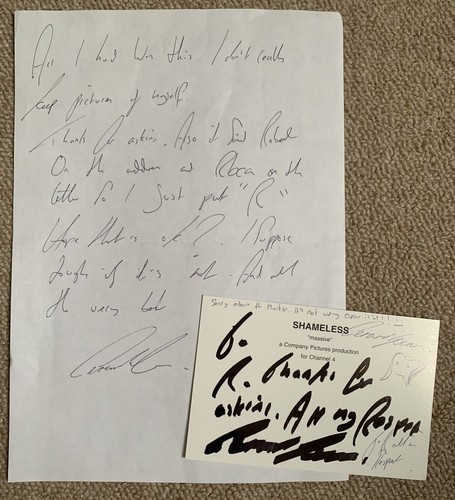 All I had was this. I don't really
keep pictures of myself.
Thanks for asking. Also it said Robert
On the address and Rocca on the
letter So I just put "R"
Hope that is ok? I suppose
tough if its not. And all
the very best
Sorry about the Marker. It's not very
SHAMELESS
"massive"
a Company Pictures production
for Channel 4
To
R. Thanks for
asking. All my Respect
Respect